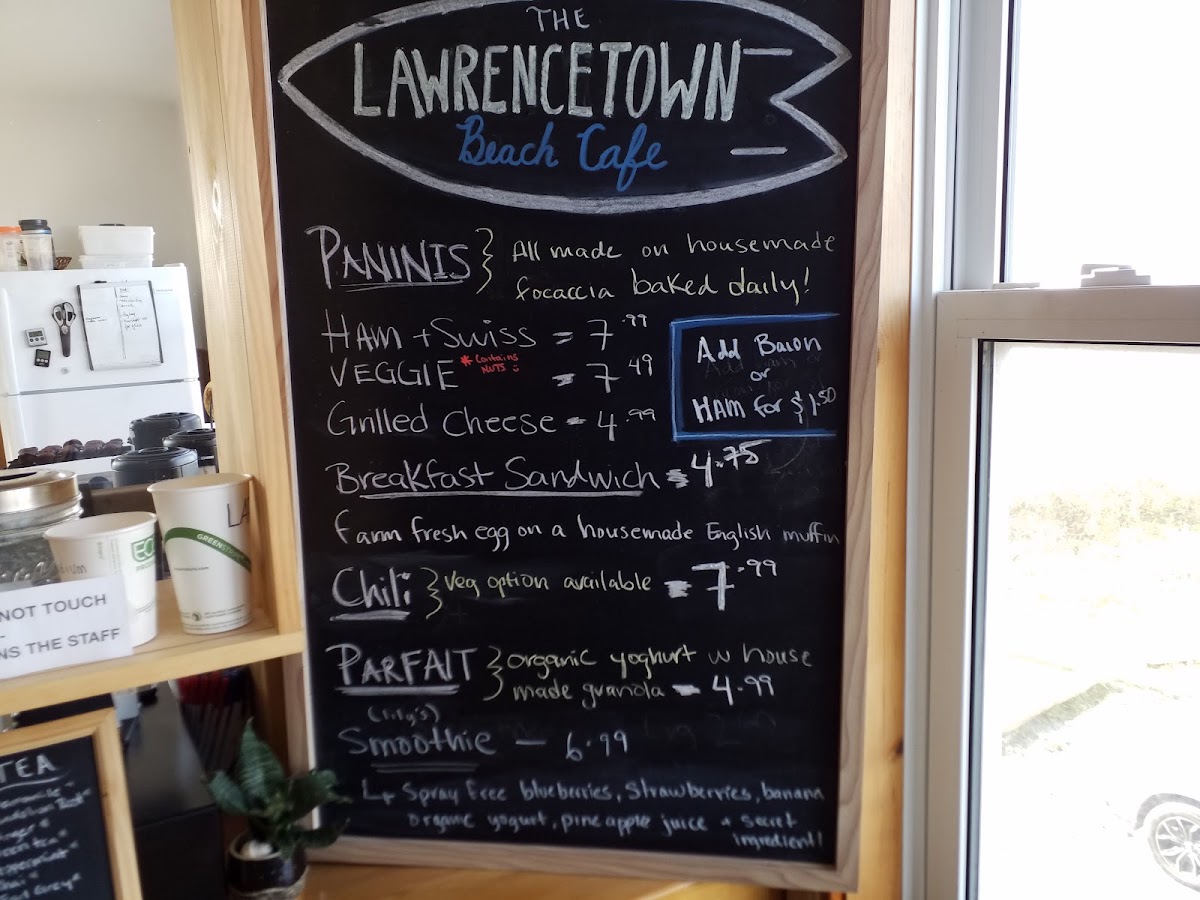 THE
LAWRENCETOWN
Beach Cafe
PANINIS } All made on housemade
focaccia baked daily!
HAM + SWISS = 7.99
VEGGIE *Contains NUTS = 7.49
Grilled Cheese = 4.99
Add Bacon
or
HAM for $1.50
Breakfast Sandwich = 4.75
farm fresh egg on a housemade English muffin
Chili } Veg option available = 7.99
PARFAIT } organic yoghurt w house
made granola - 4.99
Smoothie - 6.99
Spray free blueberries, strawberries, banana
organic yogurt, pineapple juice + secret
ingredient!
NOT TOUCH
THE STAFF
GREENSTRIPE
ECO
LA
TEA